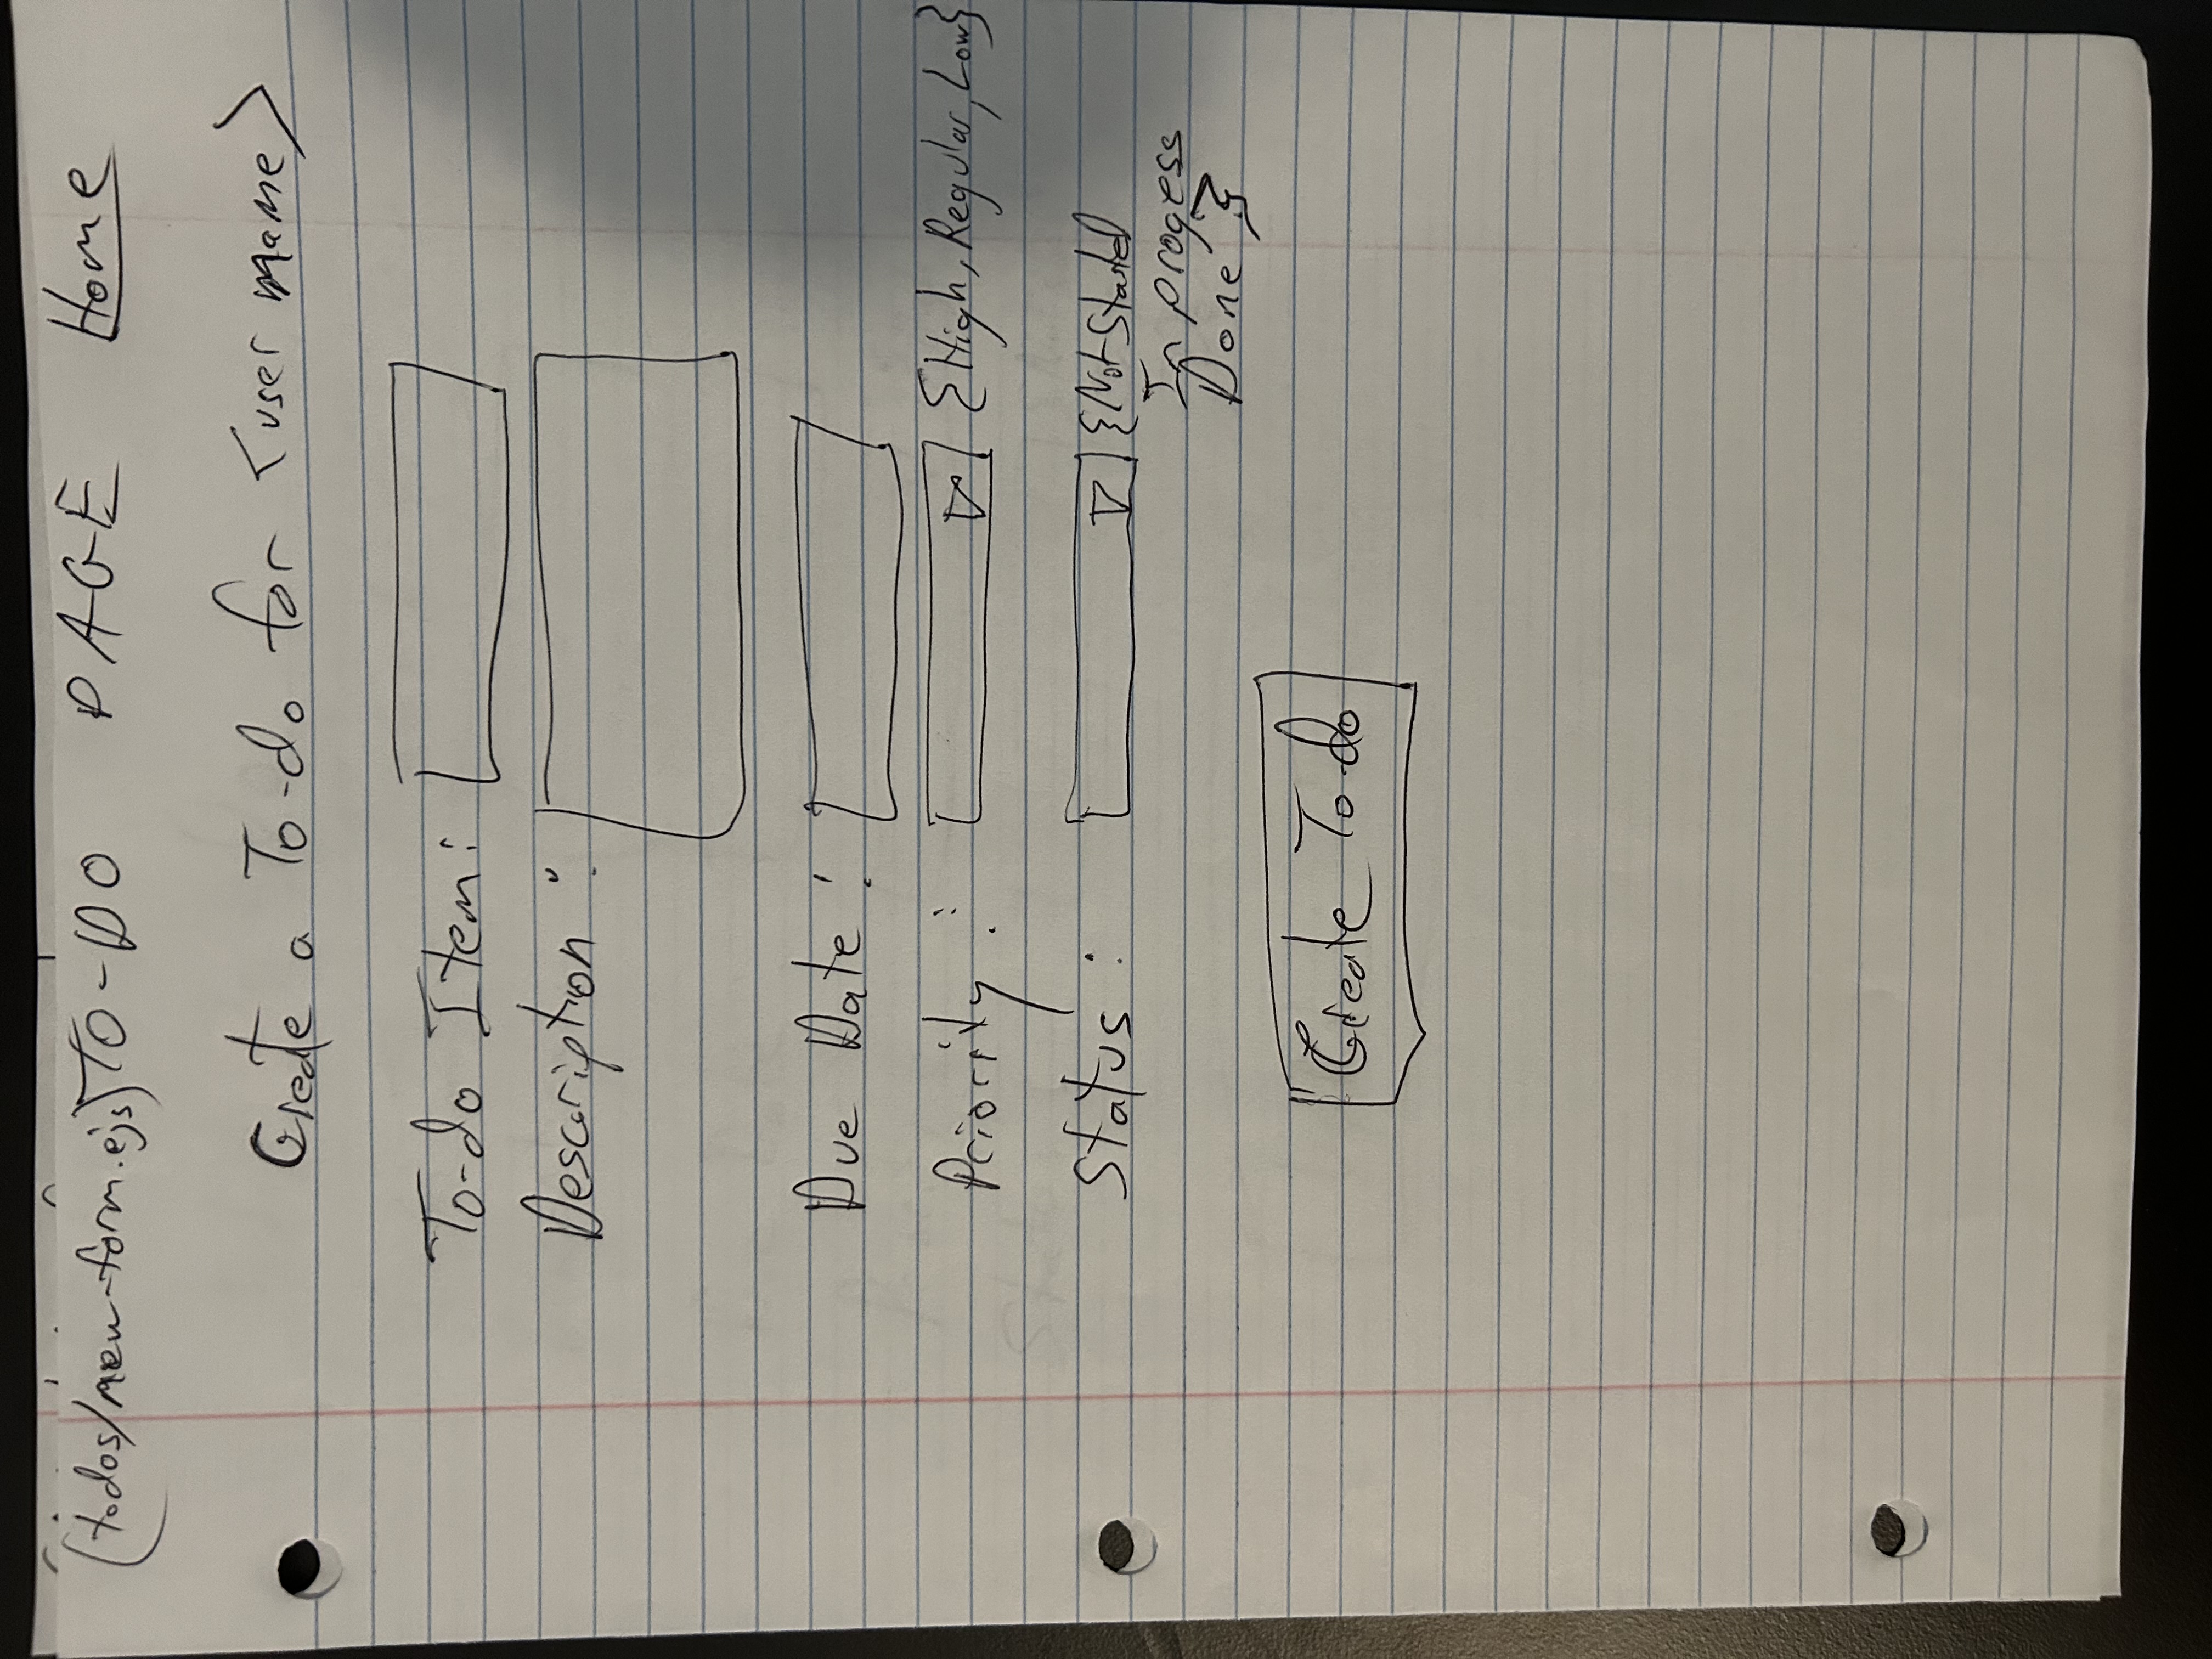 (todos/new-form.ejs) TO-DO PAGE Home
Create a To-do for <user name>
To-do Item:
Description:
Due Date:
Priority: {High, Regular, Low}
Status: {Not Started
In progess
Done }
Create To-do